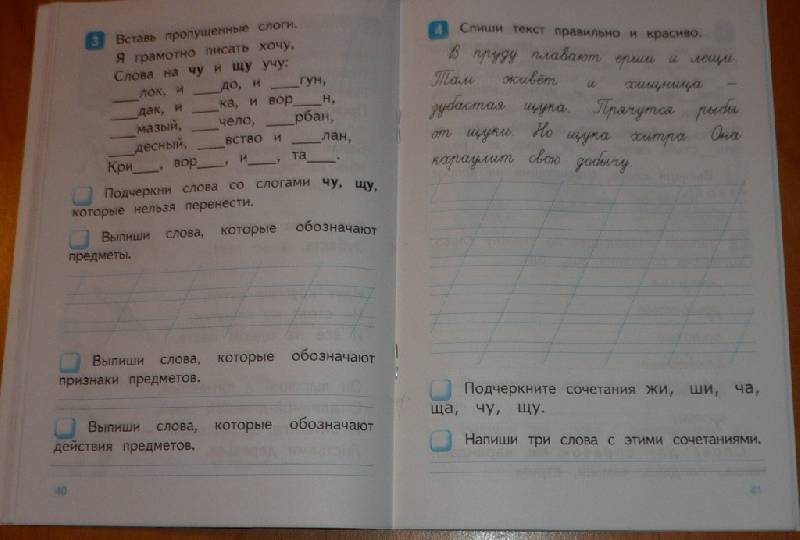 3 Вставь пропущенные слоги.
Я грамотно писать хочу,
Слова на чу и щу учу:
___лок, и ___до, и ___гун,
___дак, и ___ка, и вор___н,
___мазый, ___чело, ___рбан,
___десный, ___вство и ___лан,
Кри___, вор___, и___, та___.
Подчеркни слова со слогами чу, щу,
которые нельзя перенести.
Выпиши слова, которые обозначают
предметы.
Выпиши слова, которые обозначают
признаки предметов.
Выпиши слова, которые обозначают
действия предметов.
40
4 Спиши текст правильно и красиво.
В пруду плавают ерши и лещи.
Там живёт и хищница –
зубастая щука. Прячутся рыбы
от щуки. Но щука хитра. Она
караулит свою добычу.
Подчеркните сочетания жи, ши, ча,
ща, чу, щу.
Напиши три слова с этими сочетаниями.
41